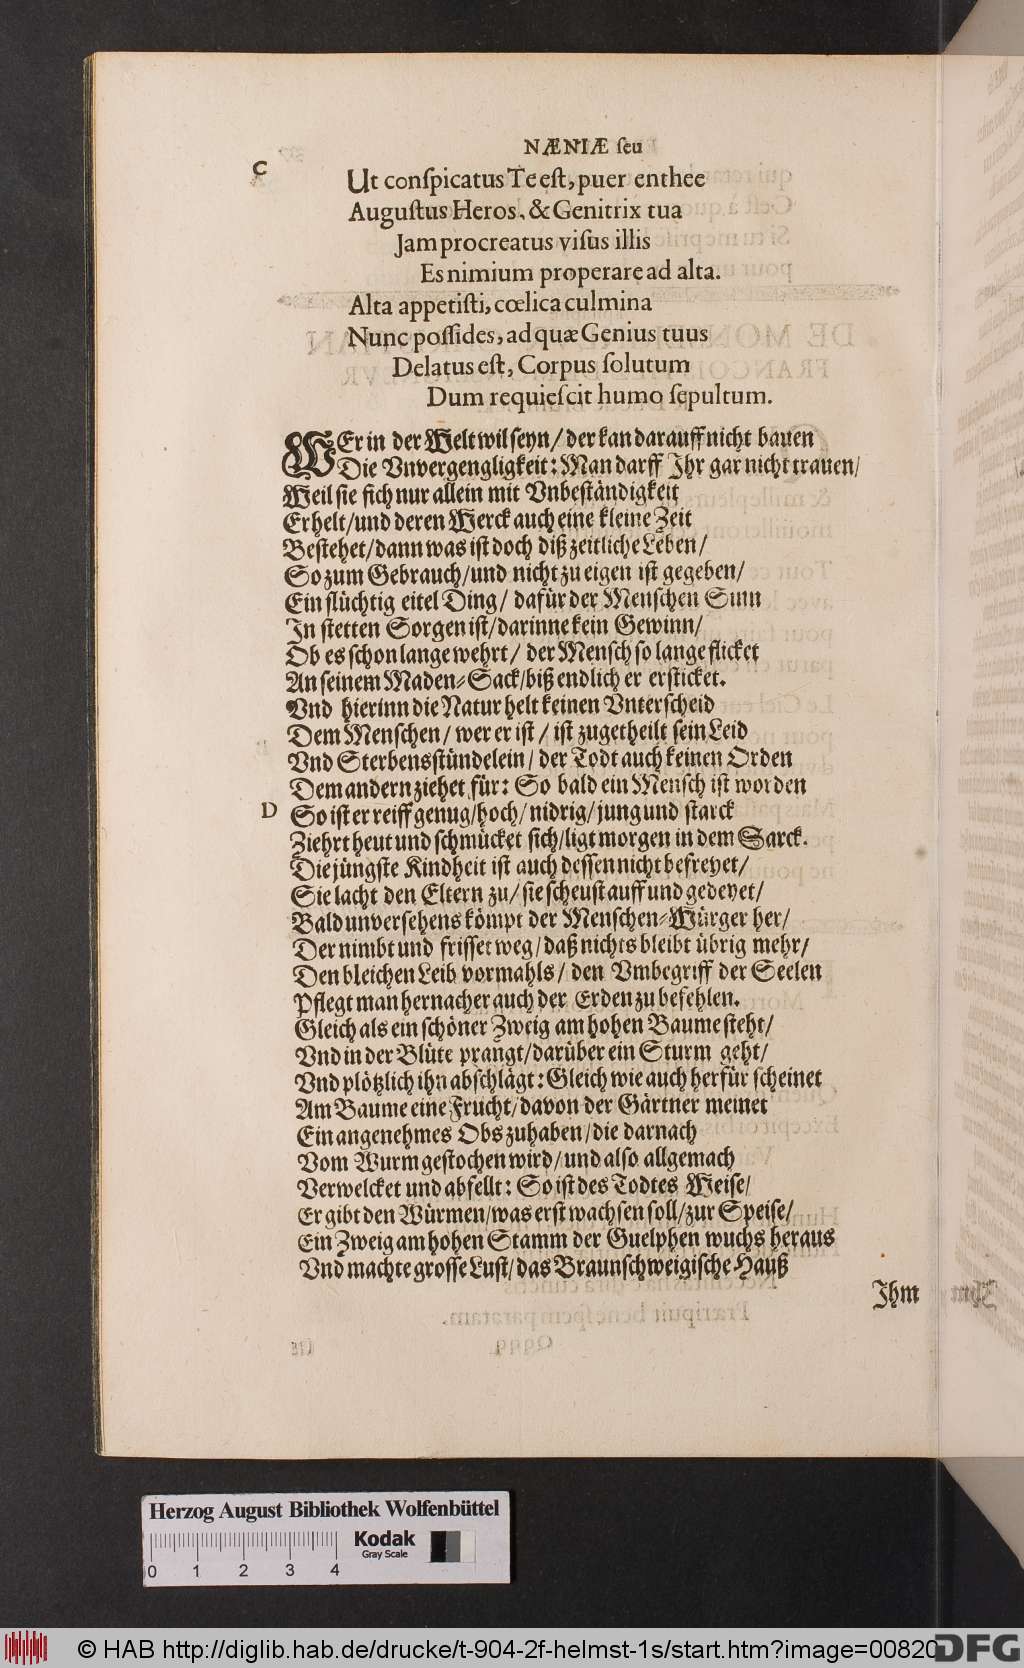 NÆNIÆ ſeu
C
Ut conſpicatus Te eſt, puer enthee
Auguſtus Heros, & Genitrix tua
Jam procreatus viſus illis
Es nimium properare ad alta.
Alta appetiſti, cœlica culmina
Nunc poſſides, ad quæ Genius tuus
Delatus eſt, Corpus ſolutum
Dum requieſcit humo ſepultum.
WEr in der Welt wil ſeyn/ der kan darauff nicht bauen
Die Unvergengligkeit: Man darff Ihr gar nicht trauen/
Weil ſie ſich nur allein mit Unbeſtändigkeit
Erhelt/ und deren Werck auch eine kleine Zeit
Beſtehet/ dann was iſt doch diß zeitliche Leben/
So zum Gebrauch/ und nicht zu eigen iſt gegeben/
Ein flüchtig eitel Ding/ dafür der Menſchen Sinn
In ſtetten Sorgen iſt/ darinne kein Gewinn/
Ob es ſchon lange wehrt/ der Menſch ſo lange flicket
An ſeinem Maden-Sack/ biß endlich er erſticket.
Und hierinn die Natur helt keinen Unterſcheid
Dem Menſchen/ wer er iſt/ iſt zugetheilt ſein Leid
Und Sterbensſtündelein/ der Todt auch keinen Orden
Dem andern ziehet für: So bald ein Menſch iſt worden
D So iſt er reiff genug/ hoch/ nidrig/ jung und ſtarck
Ziehrt heut und ſchmücket ſich/ ligt morgen in dem Sarck.
Die jüngſte Kindheit iſt auch deſſen nicht befreyet/
Sie lacht den Eltern zu/ ſie ſcheuſt auff und gedeyet/
Bald unverſehens kömpt der Menſchen-Würger her/
Der nimbt und friſſet weg/ daß nichts bleibt übrig mehr/
Den bleichen Leib vormahls/ den Umbegriff der Seelen
Pflegt man hernacher auch der Erden zu befehlen.
Gleich als ein ſchöner Zweig am hohen Baume ſteht/
Und in der Blüte prangt/ darüber ein Sturm geht/
Und plötzlich ihn abſchlägt: Gleich wie auch herfür ſcheinet
Am Baume eine Frucht/ davon der Gärtner meinet
Ein angenehmes Obs zuhaben/ die darnach
Vom Wurm geſtochen wird/ und alſo allgemach
Verwelcket und abfellt: So iſt des Todtes Weiſe/
Er gibt den Würmen/ was erſt wachſen ſoll/ zur Speiſe/
Ein Zweig am hohen Stamm der Guelphen wuchs heraus
Und machte groſſe Luſt/ das Braunſchweigiſche Hauß
Ihm
Herzog August Bibliothek Wolfenbüttel
Kodak
Gray Scale
0 1 2 3 4
© HAB http://diglib.hab.de/drucke/t-904-2f-helmst-1s/start.htm?image=00820
DFG